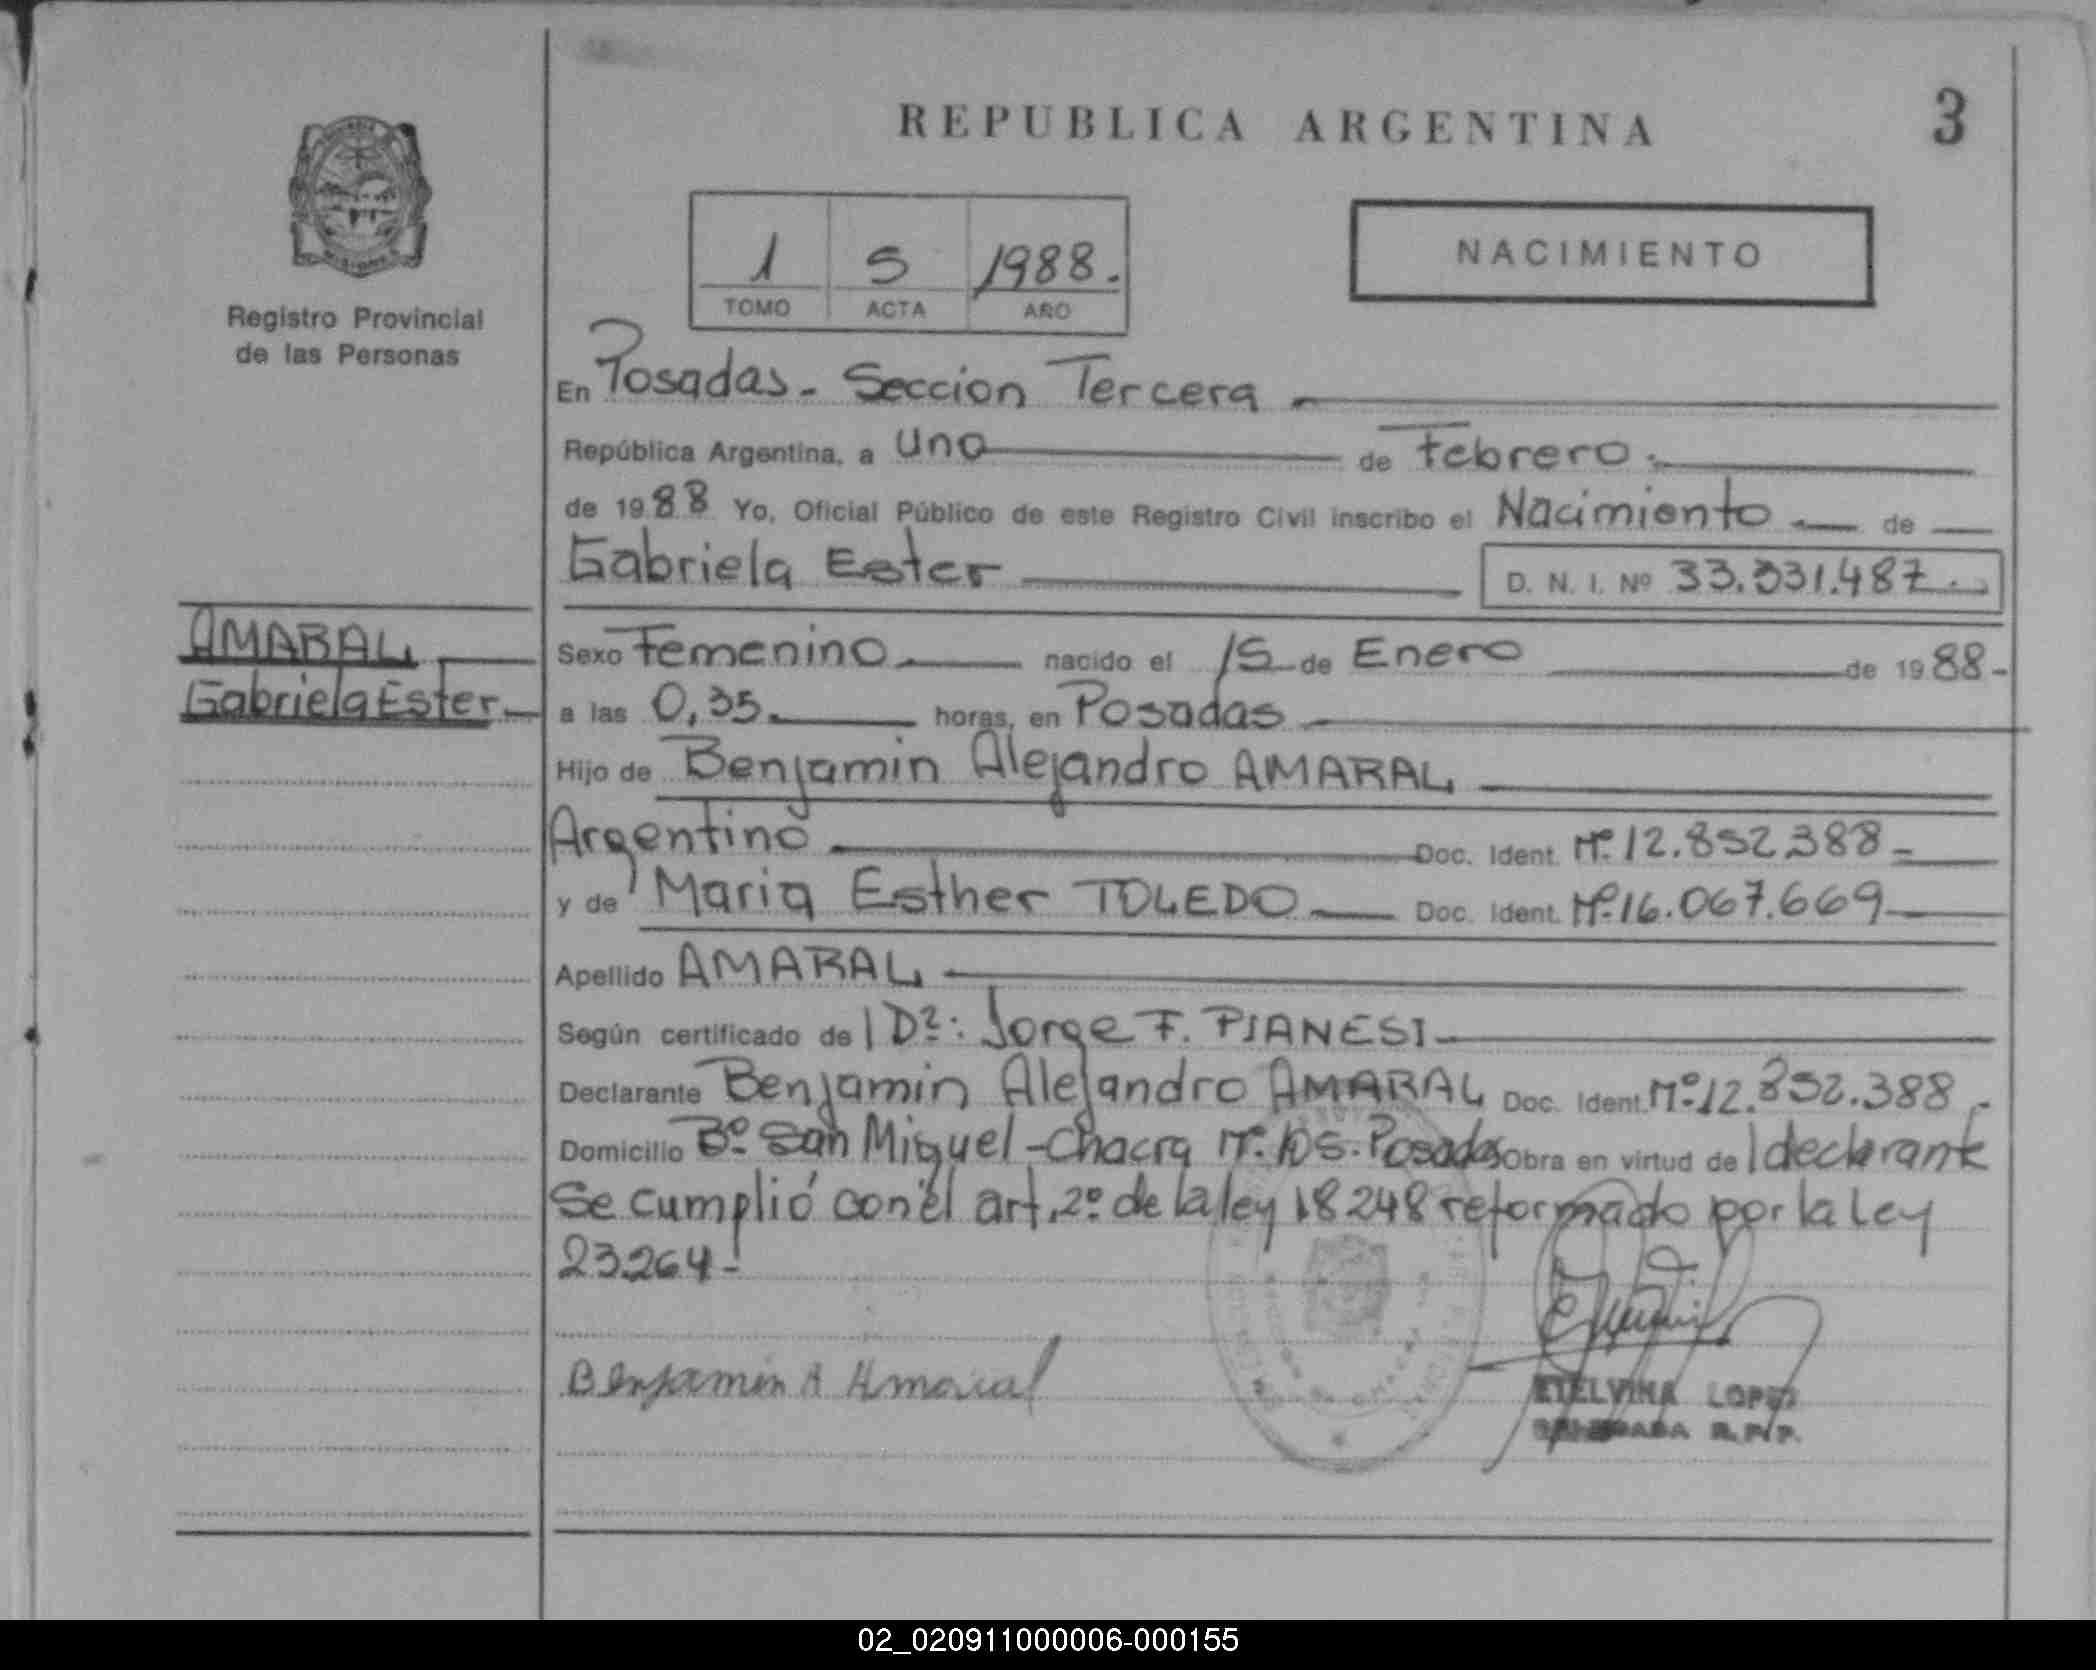 REPUBLICA ARGENTINA
3
1 5 1988.
TOMO ACTA AÑO
NACIMIENTO
Registro Provincial
de las Personas
En Posadas - Seccion Tercera
República Argentina, a uno de Febrero.
de 1988 Yo, Oficial Público de este Registro Civil inscribo el Nacimiento de
Gabriela Ester D. N. I. Nº 33.331.487.
AMARAL
Gabriela Ester
Sexo Femenino nacido el 15 de Enero de 1988-
a las 0,35 horas, en Posadas
Hijo de Benjamin Alejandro AMARAL
Argentino Doc. Ident. Nº 12.852.388-
y de Maria Esther TOLEDO Doc. Ident. Nº 16.067.669
Apellido AMARAL
Según certificado de l Dr: Jorge F. PIANESI
Declarante Benjamin Alejandro AMARAL Doc. Ident. Nº 12.852.388.-
Domicilio Bº San Miguel - Chacra Nº 105. Posadas Obra en virtud de l declarante
Se cumplió con el art. 2º de la ley 18248 reformado por la Ley
23264-
Benjamin A Amaral
ETELVINA LOPEZ
R.P.P.
02_020911000006-000155